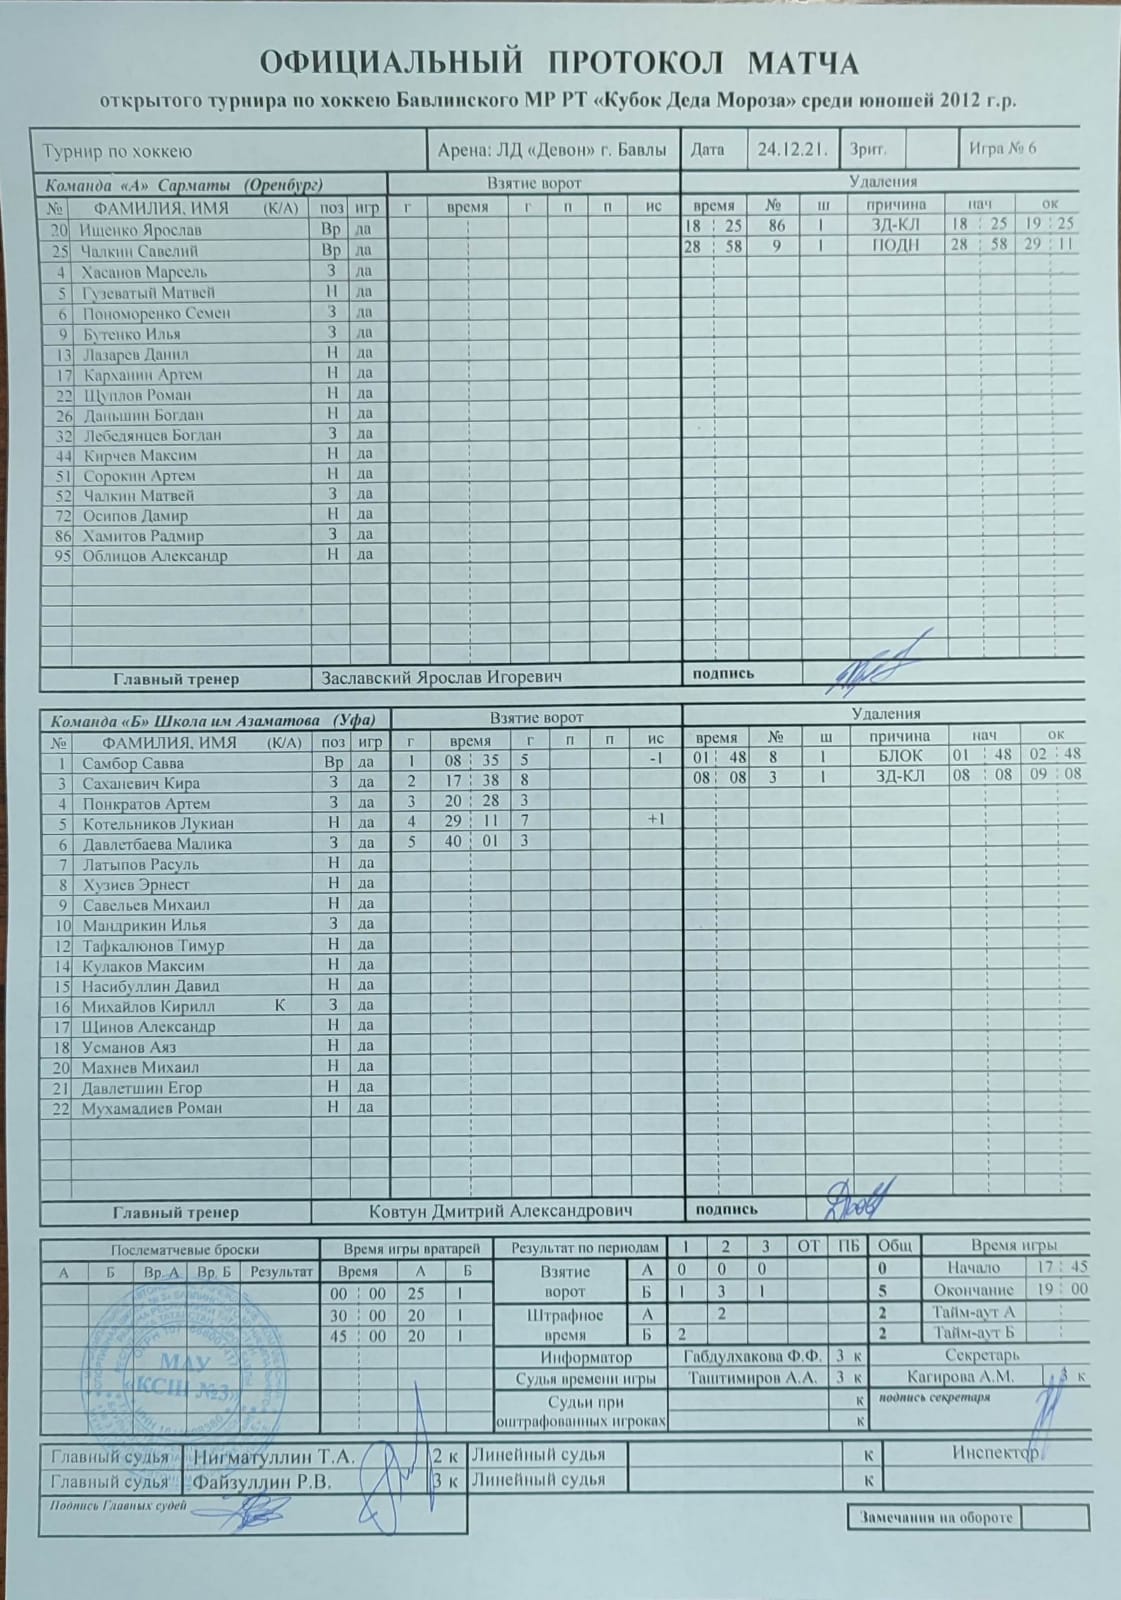 ОФИЦИАЛЬНЫЙ ПРОТОКОЛ МАТЧА
открытого турнира по хоккею Бавлинского МР РТ «Кубок Деда Мороза» среди юношей 2012 г.р.
Турнир по хоккею Арена: ЛД «Девон» г. Бавлы Дата 24.12.21. Зрит. Игра № 6
Команда «А» Сарматы (Оренбург) Взятие ворот Удаления
№ ФАМИЛИЯ, ИМЯ (К/А) поз игр г время г п п ис время № ш причина нач ок
20 Ищенко Ярослав Вр да 18 : 25 86 1 ЗД-КЛ 18 : 25 19 : 25
25 Чалкин Савелий Вр да 28 : 58 9 1 ПОДН 28 : 58 29 : 11
4 Хасанов Марсель З да
5 Гузеватый Матвей Н да
6 Пономоренко Семен З да
9 Бутенко Илья З да
13 Лазарев Данил Н да
17 Карханин Артем Н да
22 Щуплов Роман Н да
26 Даньшин Богдан Н да
32 Лебедянцев Богдан З да
44 Кирчев Максим Н да
51 Сорокин Артем Н да
52 Чалкин Матвей З да
72 Осипов Дамир Н да
86 Хамитов Радмир З да
95 Облицов Александр Н да
Главный тренер Заславский Ярослав Игоревич подпись
Команда «Б» Школа им Азаматова (Уфа) Взятие ворот Удаления
№ ФАМИЛИЯ, ИМЯ (К/А) поз игр г время г п п ис время № ш причина нач ок
1 Самбор Савва Вр да 1 08 : 35 5 -1 01 : 48 8 1 БЛОК 01 : 48 02 : 48
3 Саханевич Кира З да 2 17 : 38 8 08 : 08 3 1 ЗД-КЛ 08 : 08 09 : 08
4 Понкратов Артем З да 3 20 : 28 3
5 Котельников Лукиан Н да 4 29 : 11 7 +1
6 Давлетбаева Малика З да 5 40 : 01 3
7 Латыпов Расуль Н да
8 Хузиев Эрнест Н да
9 Савельев Михаил Н да
10 Мандрикин Илья З да
12 Тафкалюнов Тимур Н да
14 Кулаков Максим Н да
15 Насибуллин Давид Н да
16 Михайлов Кирилл К З да
17 Щинов Александр Н да
18 Усманов Аяз Н да
20 Махнев Михаил Н да
21 Давлетшин Егор Н да
22 Мухамадиев Роман Н да
Главный тренер Ковтун Дмитрий Александрович подпись
Послематчевые броски Время игры вратарей Результат по периодам 1 2 3 ОТ ПБ Общ Время игры
А Б Вр. А Вр. Б Результат Время А Б Взятие ворот А 0 0 0 0 Начало 17 : 45
00 : 00 25 1 Б 1 3 1 5 Окончание 19 : 00
30 : 00 20 1 Штрафное время А 2 2 Тайм-аут А :
45 : 00 20 1 Б 2 2 Тайм-аут Б :
Информатор Габдулхакова Ф.Ф. 3 к Секретарь
Судья времени игры Таштимиров А.А. 3 к Кагирова А.М. 3 к
Судьи при оштрафованных игроках к подпись секретаря
к
МАУ
«КСШ №3»
Главный судья Нигматуллин Т.А. 2 к Линейный судья к Инспектор
Главный судья Файзуллин Р.В. 3 к Линейный судья к
Подпись Главных судей
Замечания на обороте